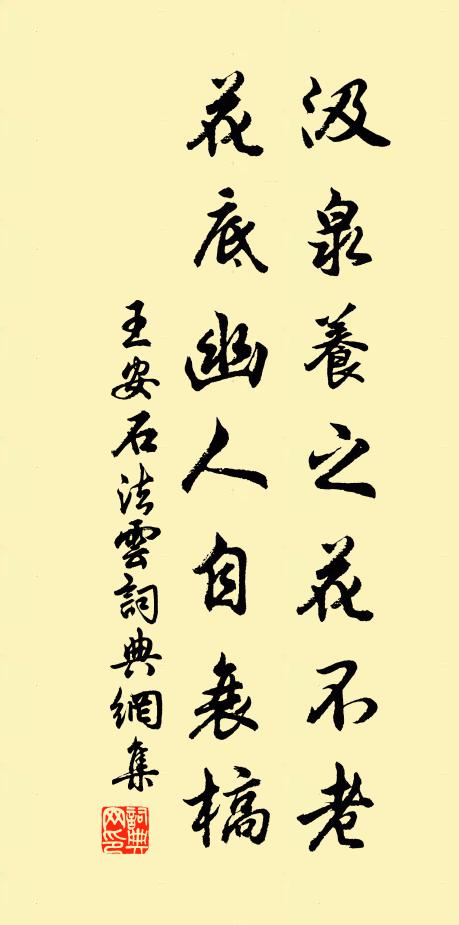 汲泉養之花不老
花底幽人自衰槁
王安石法雲詞典網集
詞典网印